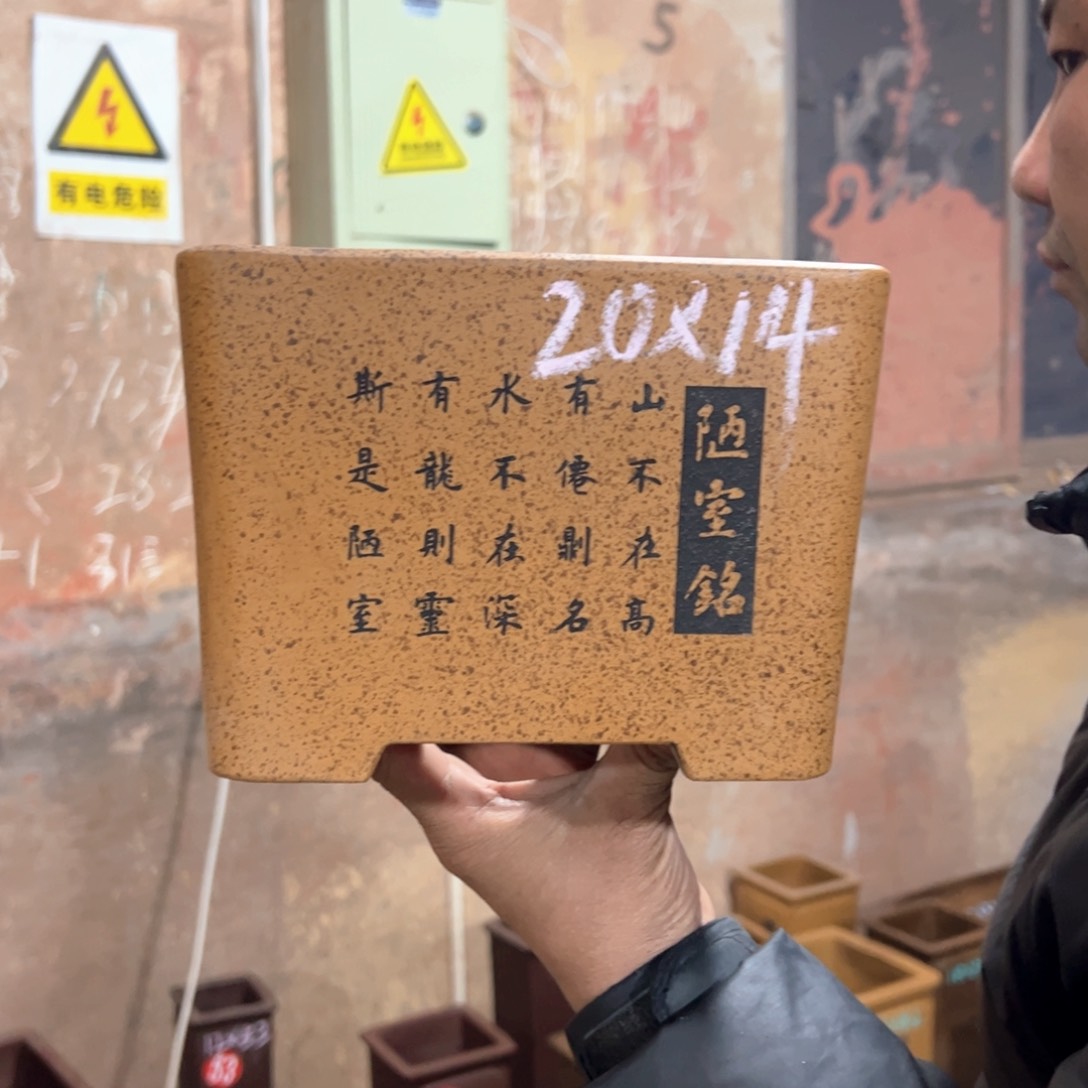 有电危险
5
20X14
陋室銘
山不在高
有僊則名
水不在深
有龍則靈
斯是陋室